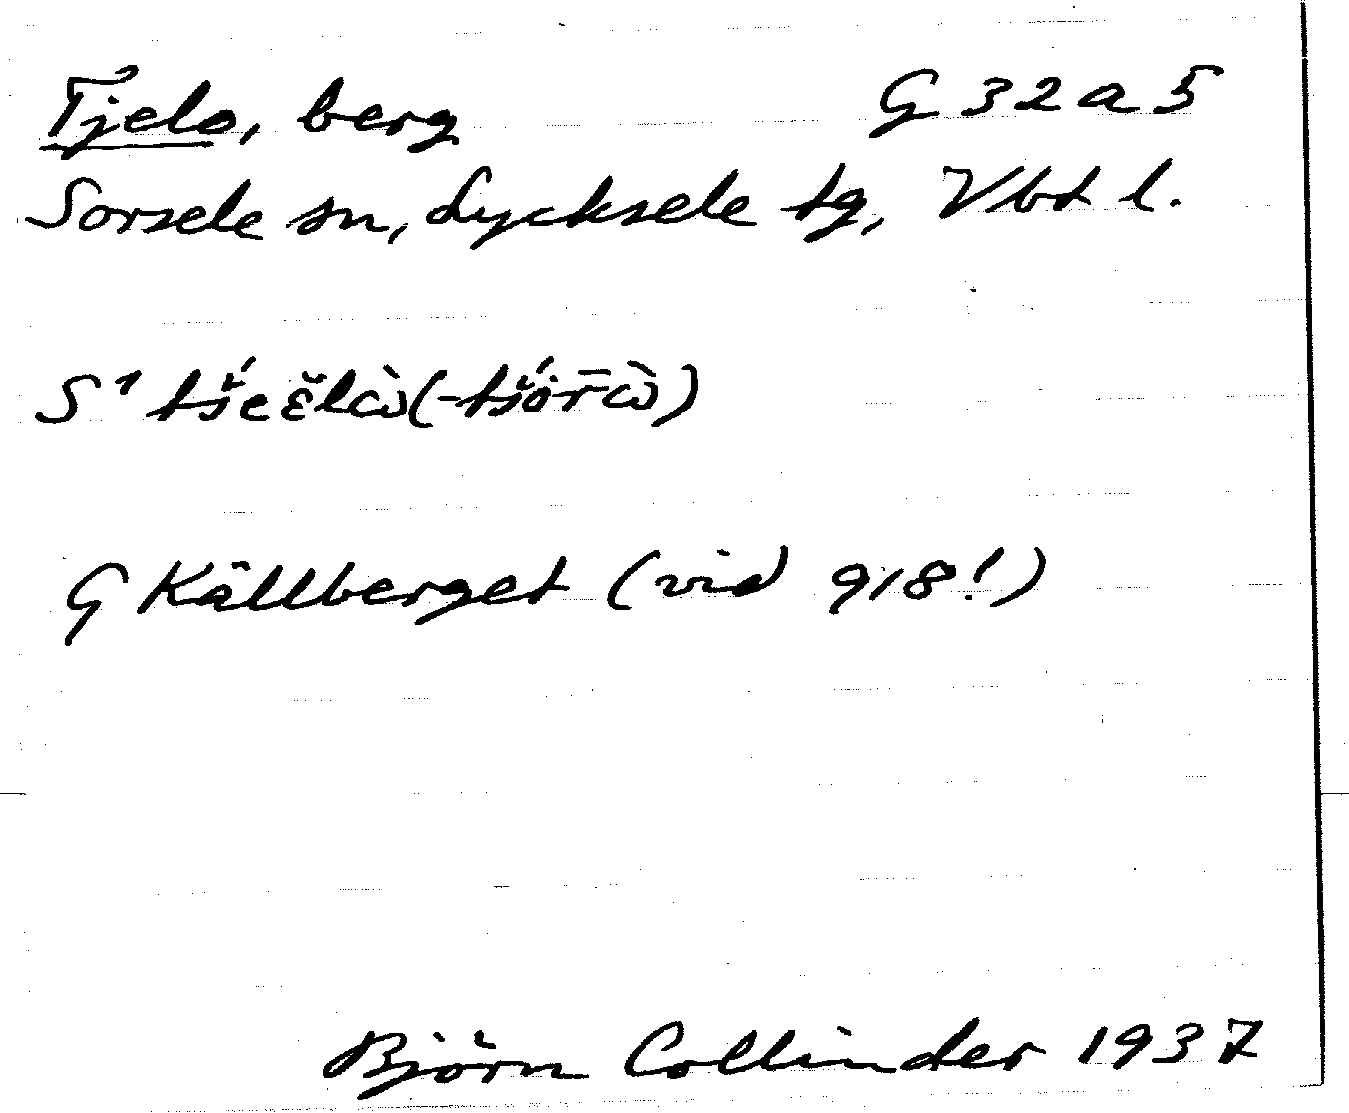 Tjelo, berg G 32 a 5
Sorsele sn, Lycksele tg, Vbt l.
S¹ tš́eε̆lὼ(-tš́ȯr̄ὼ)
G Källberget (vid 918!)
Björn Collinder 1937